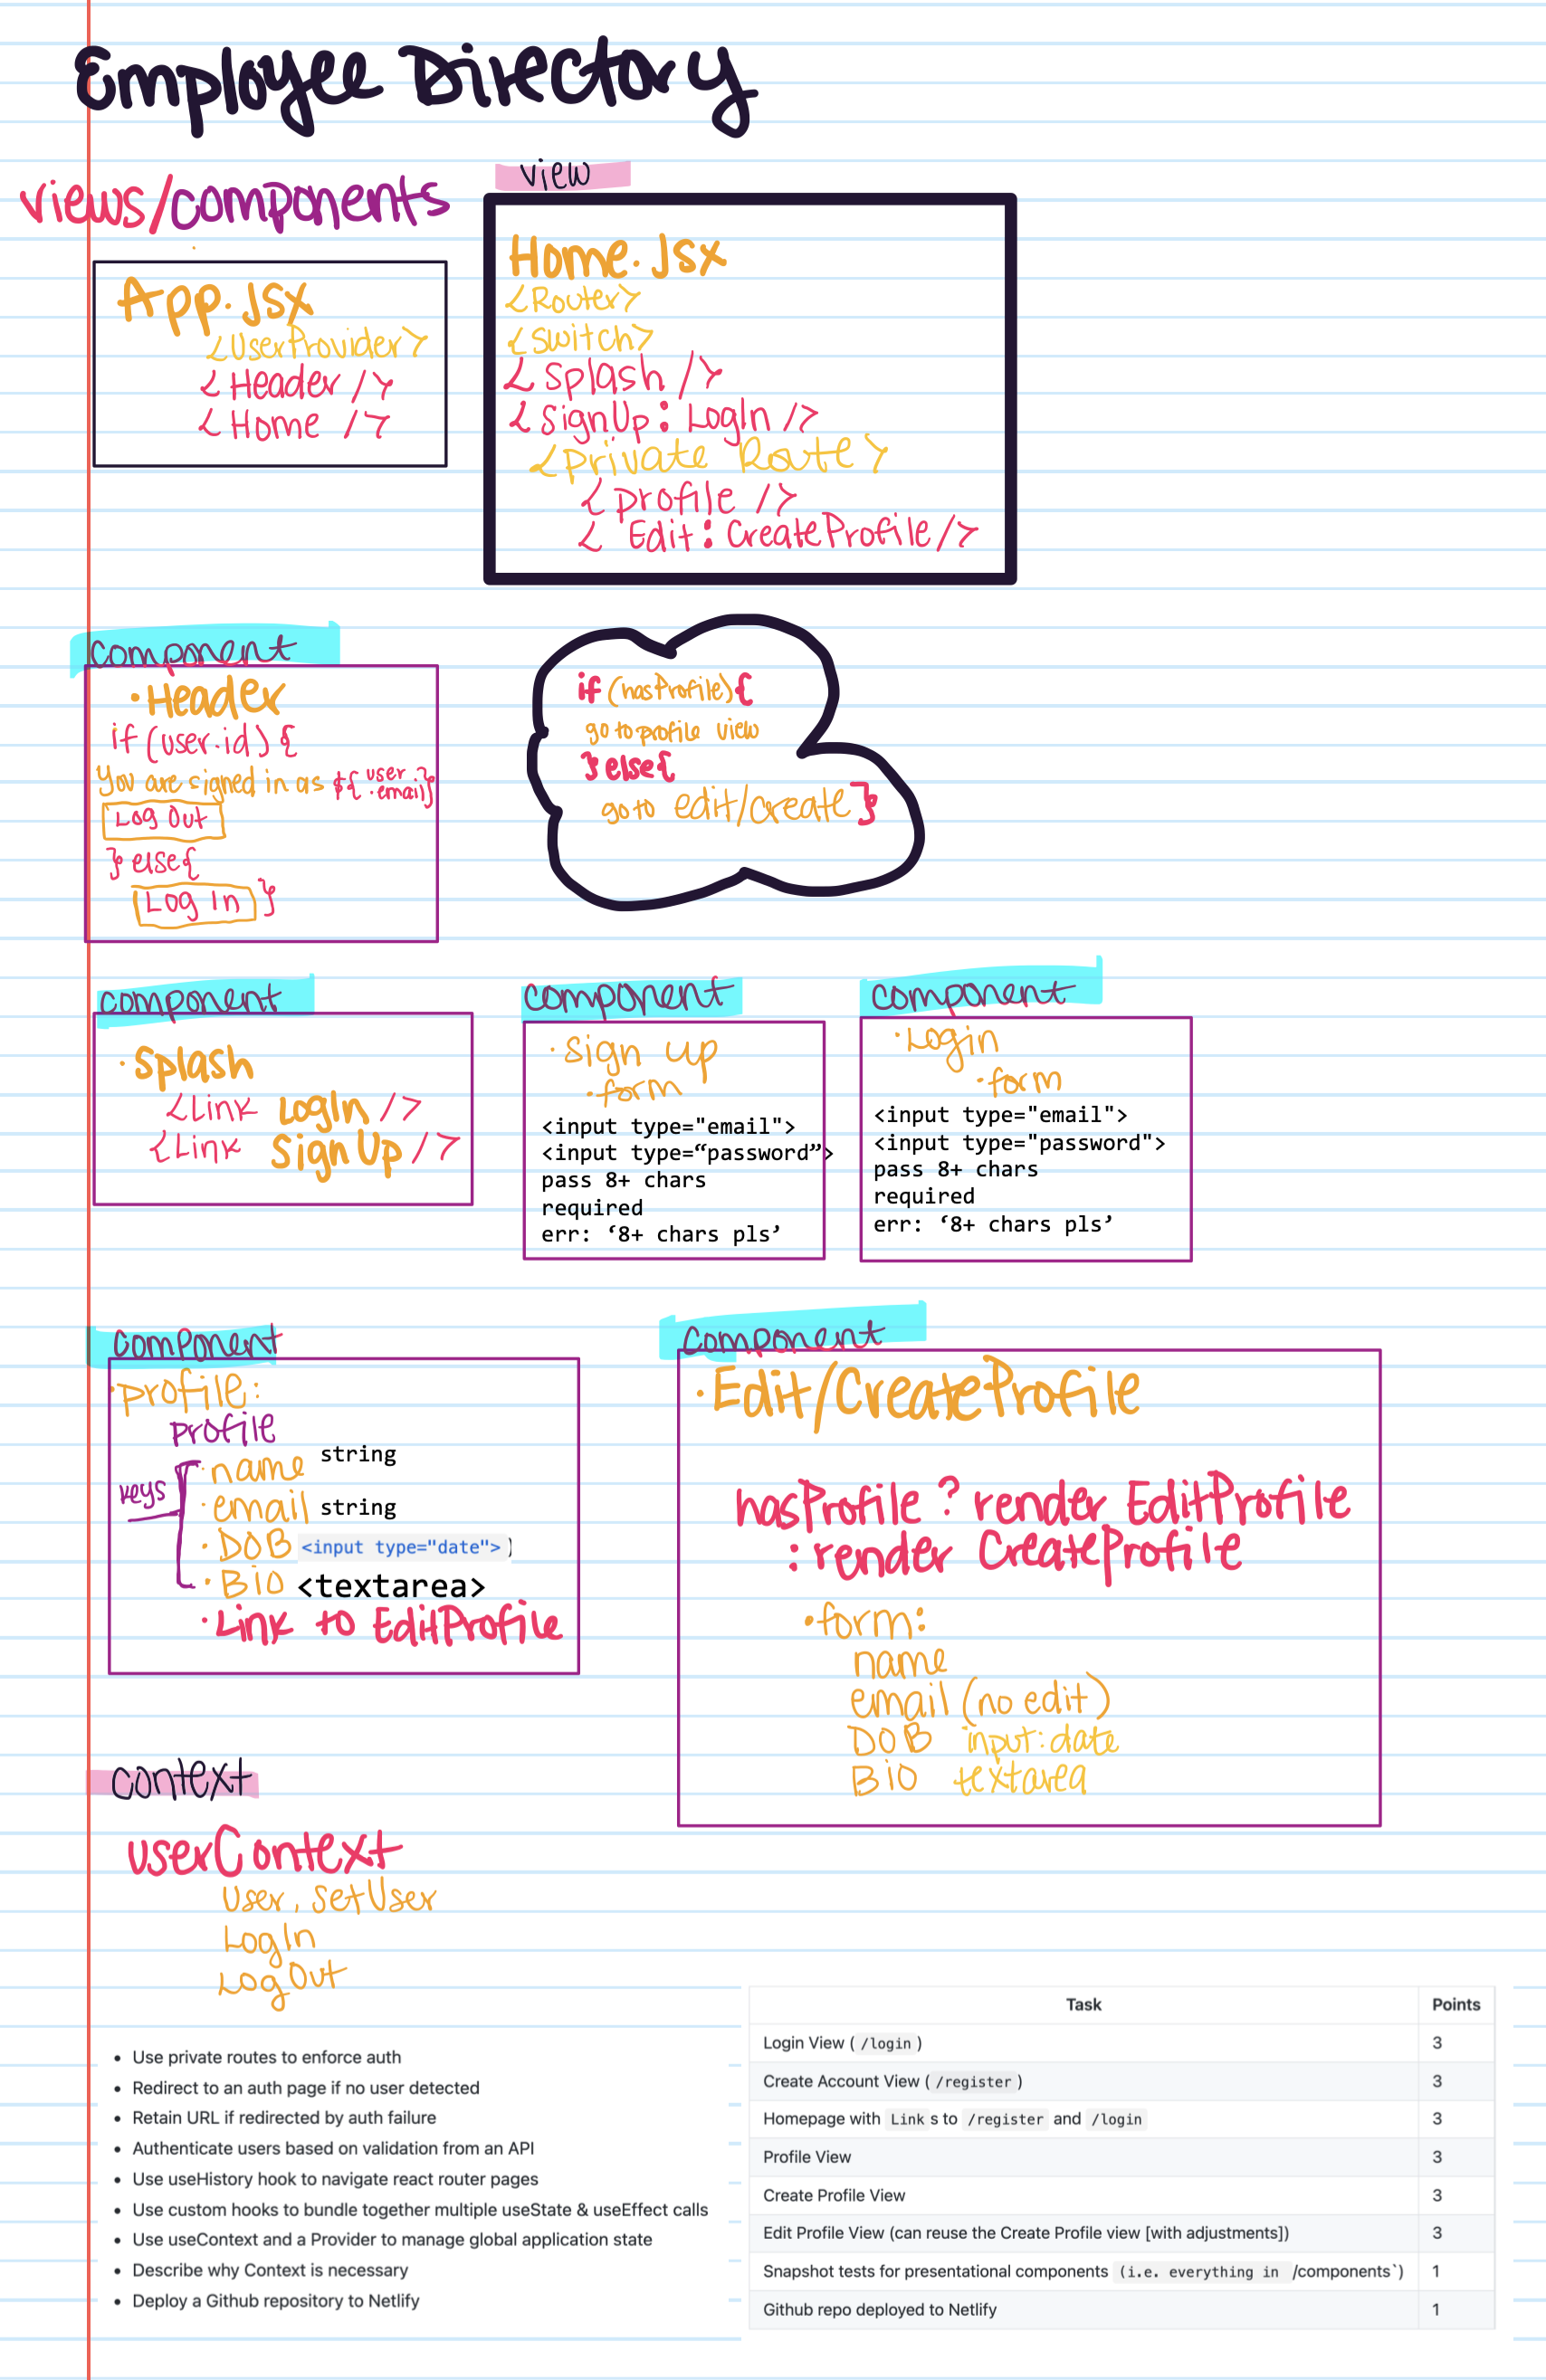 Employee Directory
views/components
App.jsx
<UserProvider>
<Header />
<Home />
view
Home.jsx
<Router>
<Switch>
<Splash />
<SignUp: LogIn />
<private Route>
<profile />
< Edit: CreateProfile />
component
• Header
if (user.id) {
You are signed in as ${user.email}
Log Out
} else {
Log In }
if (hasProfile) {
go to profile view
} else {
go to edit/create }
component
• Splash
<Link LogIn />
<Link SignUp />
component
• Sign up
• form
<input type="email">
<input type=“password”>
pass 8+ chars
required
err: ‘8+ chars pls’
component
• Login
• form
<input type="email">
<input type="password">
pass 8+ chars
required
err: ‘8+ chars pls’
component
• profile:
profile
keys
• name string
• email string
• DOB <input type="date"> )
• Bio <textarea>
• Link to EditProfile
component
• Edit/CreateProfile
hasProfile ? render EditProfile
: render CreateProfile
• form:
name
email (no edit)
DOB input: date
Bio textarea
context
userContext
User, SetUser
LogIn
LogOut
• Use private routes to enforce auth
• Redirect to an auth page if no user detected
• Retain URL if redirected by auth failure
• Authenticate users based on validation from an API
• Use useHistory hook to navigate react router pages
• Use custom hooks to bundle together multiple useState & useEffect calls
• Use useContext and a Provider to manage global application state
• Describe why Context is necessary
• Deploy a Github repository to Netlify
Task Points
Login View ( /login ) 3
Create Account View ( /register ) 3
Homepage with Link s to /register and /login 3
Profile View 3
Create Profile View 3
Edit Profile View (can reuse the Create Profile view [with adjustments]) 3
Snapshot tests for presentational components (i.e. everything in /components`) 1
Github repo deployed to Netlify 1